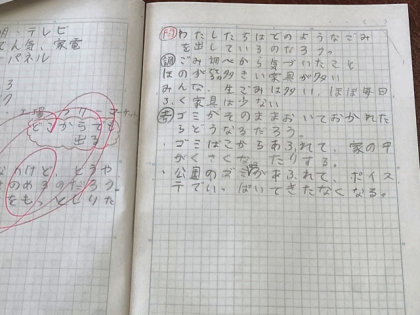 明・テレビ
でん気、家電
ーパネル
どこからでも
出る
なけど、どうや
そのあるのだろう。
をもっとしりた
問 わたしたちはどのようなごみ
を出しているのだろう。
調 ごみ調べから気づいたこと
ほのが
家具が多い
みんな、生ごみは多い、ほぼ毎日
ふく家具は少ない
ゴミがそのままおいておかれた
らどうなるだろう。
・ゴミばこからあふれて、家の中
がくさくなったりする。
・公園のゴミがあふれて、ポイス
テでいっぱいできたなくなる。